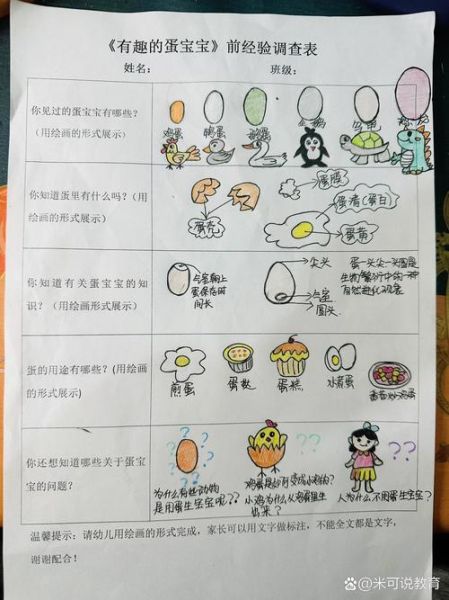 《有趣的蛋宝宝》前经验调查表
姓名： 班级：
你见过的蛋宝宝有哪些？
（用绘画的形式展示）
鸡蛋 鸭蛋 鹅蛋 企鹅 乌龟
你知道蛋里有什么吗？（用
绘画的形式展示）
蛋壳
蛋膜
蛋清（蛋白）
蛋黄
你知道有关蛋宝宝的知
识？（用绘画形式展示）
气室朝上
蛋保存时
间长
尖头
气室
圆头
蛋一头尖一头圆是
生物繁衍中的一种
自然进化现象
蛋的用途有哪些？（用绘画
的形式展示）
煎蛋 蛋挞 蛋糕 水煮蛋 番茄炒鸡蛋
你还想知道哪些关于蛋宝
宝的问题？
为什么有些动物
是用蛋生宝宝呢？？
小鸡为什么从鸡蛋里生
出来？
人为什么不用蛋生宝宝？
温馨提示：请幼儿用绘画的形式完成，家长可以用文字做标注，不能全文都是文字，
谢谢配合！
@米可说教育